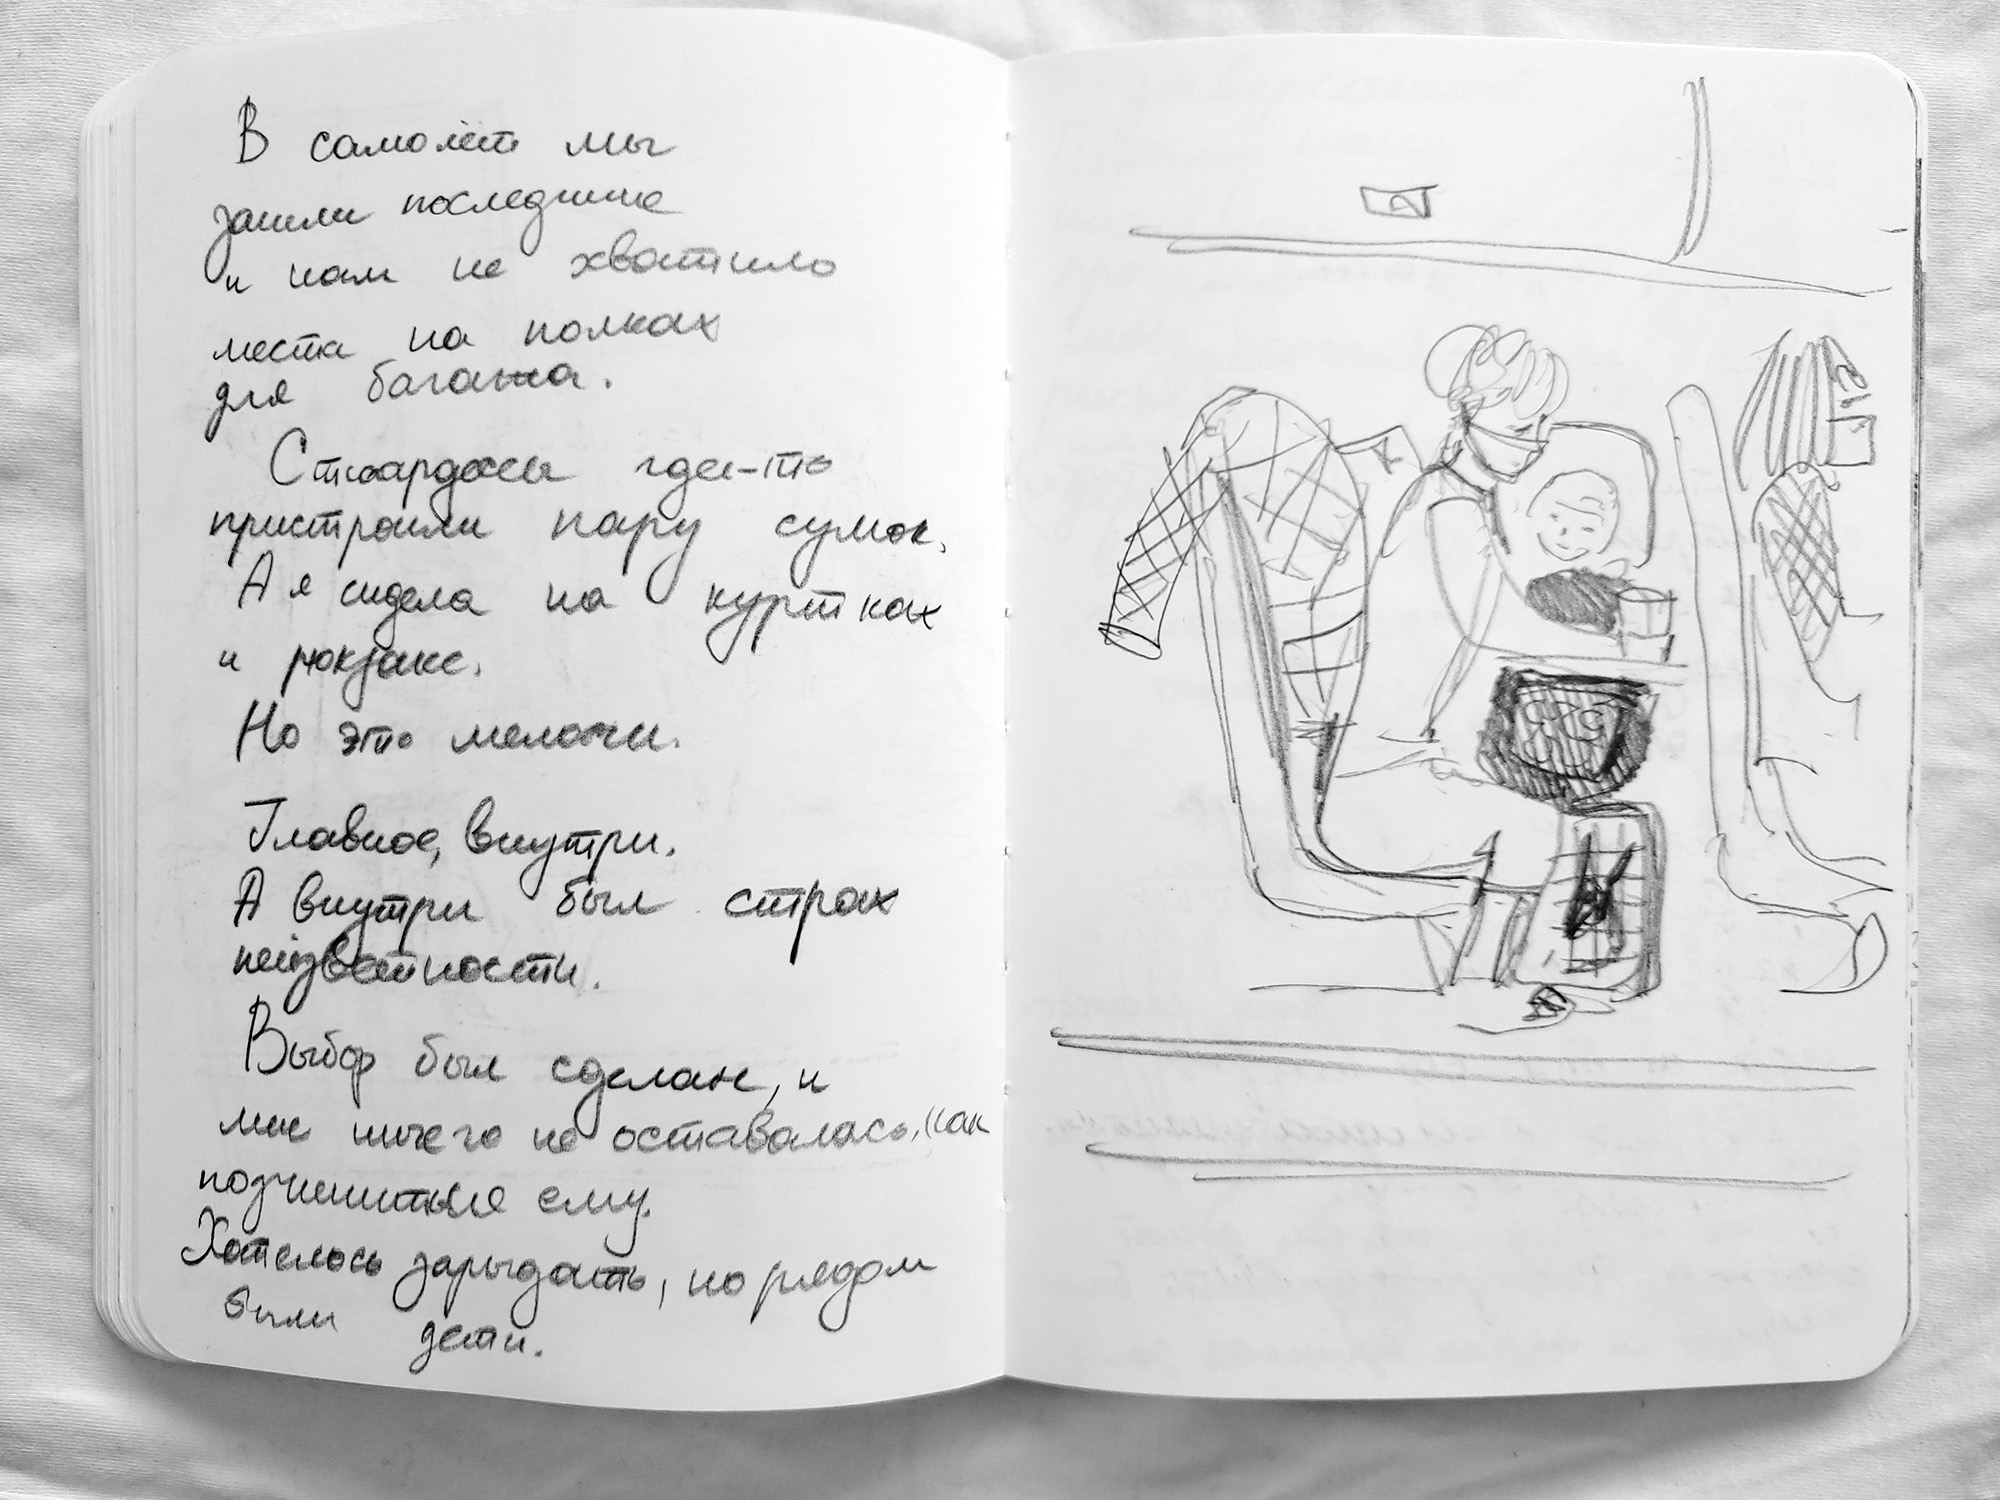 В самолёт мы
зашли последние
и нам не хватило
места на полках
для багажа.
Стюардессы где-то
пристроили пару сумок.
А я сидела на куртках
и рюкзаке.
Но это мелочи.
Главное, внутри.
А внутри был страх
неизвестности.
Выбор был сделан, и
мне ничего не оставалась, как
подчиниться ему.
Хотелось зарыдать, но рядом
были дети.